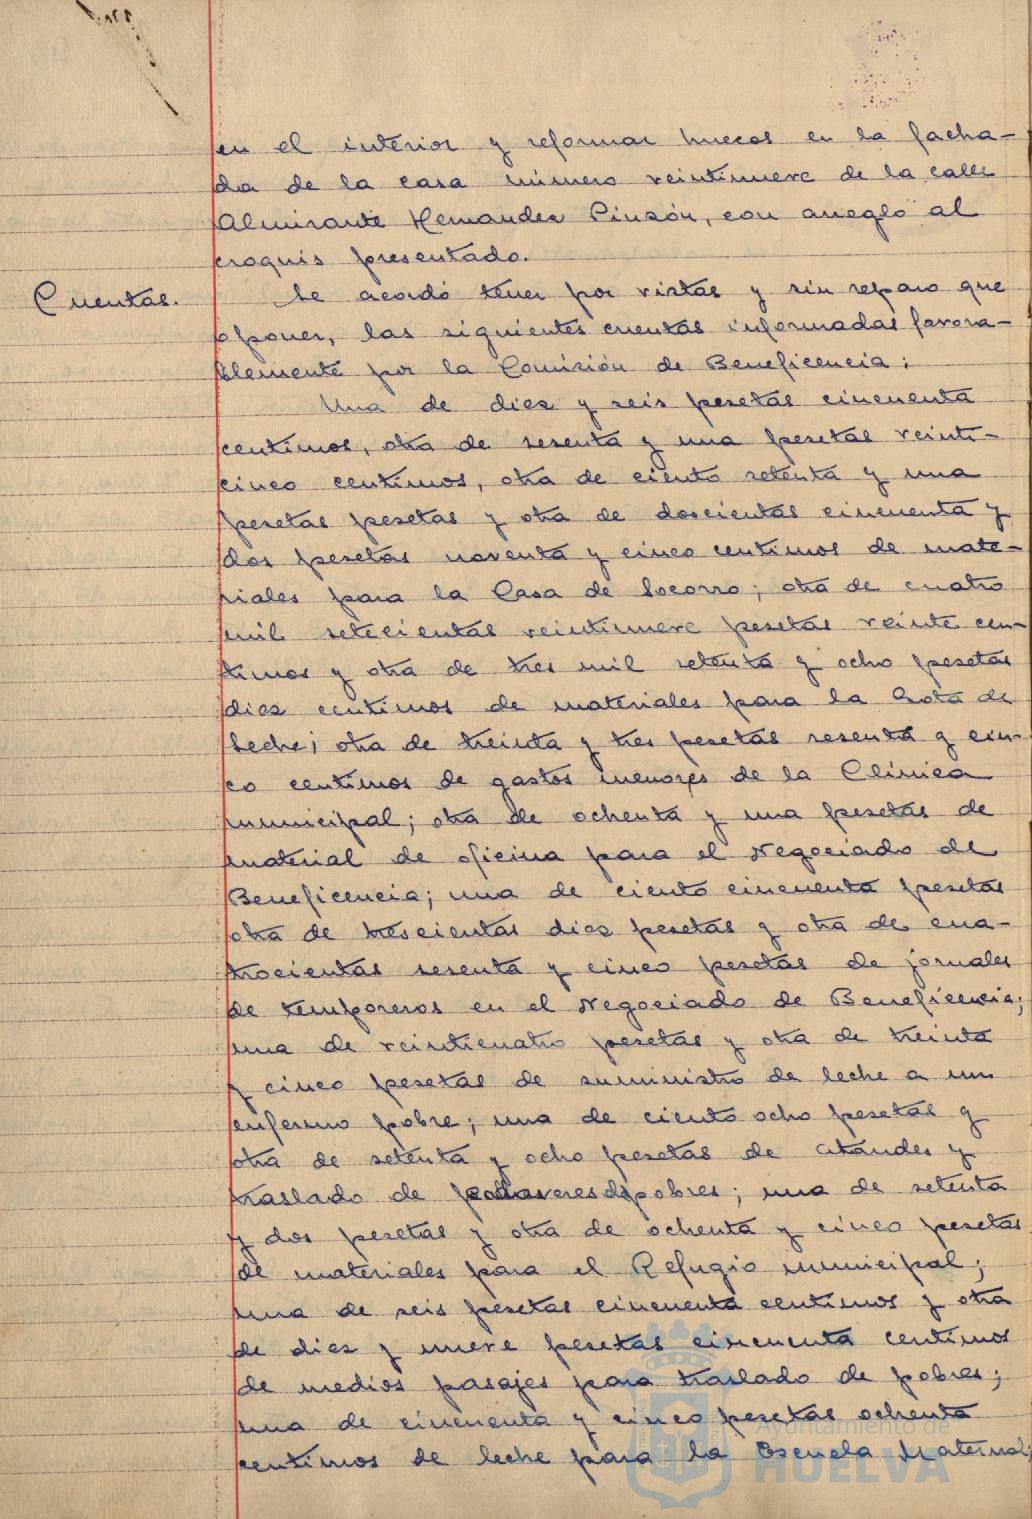 en el interior y reformar huecos en la facha-
da de la casa número veintinueve de la calle
Almirante Hernandez Pinzón, con arreglo al
croquis presentado.
Cuentas. Se acordó tener por vistas y sin reparo que
oponer, las siguientes cuentas informadas favora-
blemente por la Comisión de Beneficencia:
Una de diez y seis pesetas cincuenta
centimos, otra de sesenta y una pesetas veinti-
cinco centimos, otra de ciento setenta y una
pesetas pesetas y otra de doscientas cincuenta y
dos pesetas noventa y cinco centimos de mate-
riales para la Casa de Socorro; otra de cuatro
mil setecientas veintinueve pesetas veinte cen-
timos y otra de tres mil setenta y ocho pesetas
diez centimos de materiales para la Gota de
Leche; otra de treinta y tres pesetas sesenta y cin-
co centimos de gastos menores de la Clinica
municipal; otra de ochenta y una pesetas de
material de oficina para el Negociado de
Beneficencia; una de ciento cincuenta pesetas
otra de trescientas diez pesetas y otra de cua-
trocientas sesenta y cinco pesetas de jornales
de temporeros en el Negociado de Beneficencia;
una de veinticuatro pesetas y otra de treinta
y cinco pesetas de suministro de leche a un
enfermo pobre; una de ciento ocho pesetas y
otra de setenta y ocho pesetas de ataudes y
traslado de cadaveres de pobres; una de setenta
y dos pesetas y otra de ochenta y cinco pesetas
de materiales para el Refugio municipal;
una de seis pesetas cincuenta centimos y otra
de diez y nueve pesetas cincuenta centimos
de medios pasajes para traslado de pobres;
una de cincuenta y cinco pesetas ochenta
centimos de leche para la Escuela Maternal;
Ayuntamiento de
HUELVA